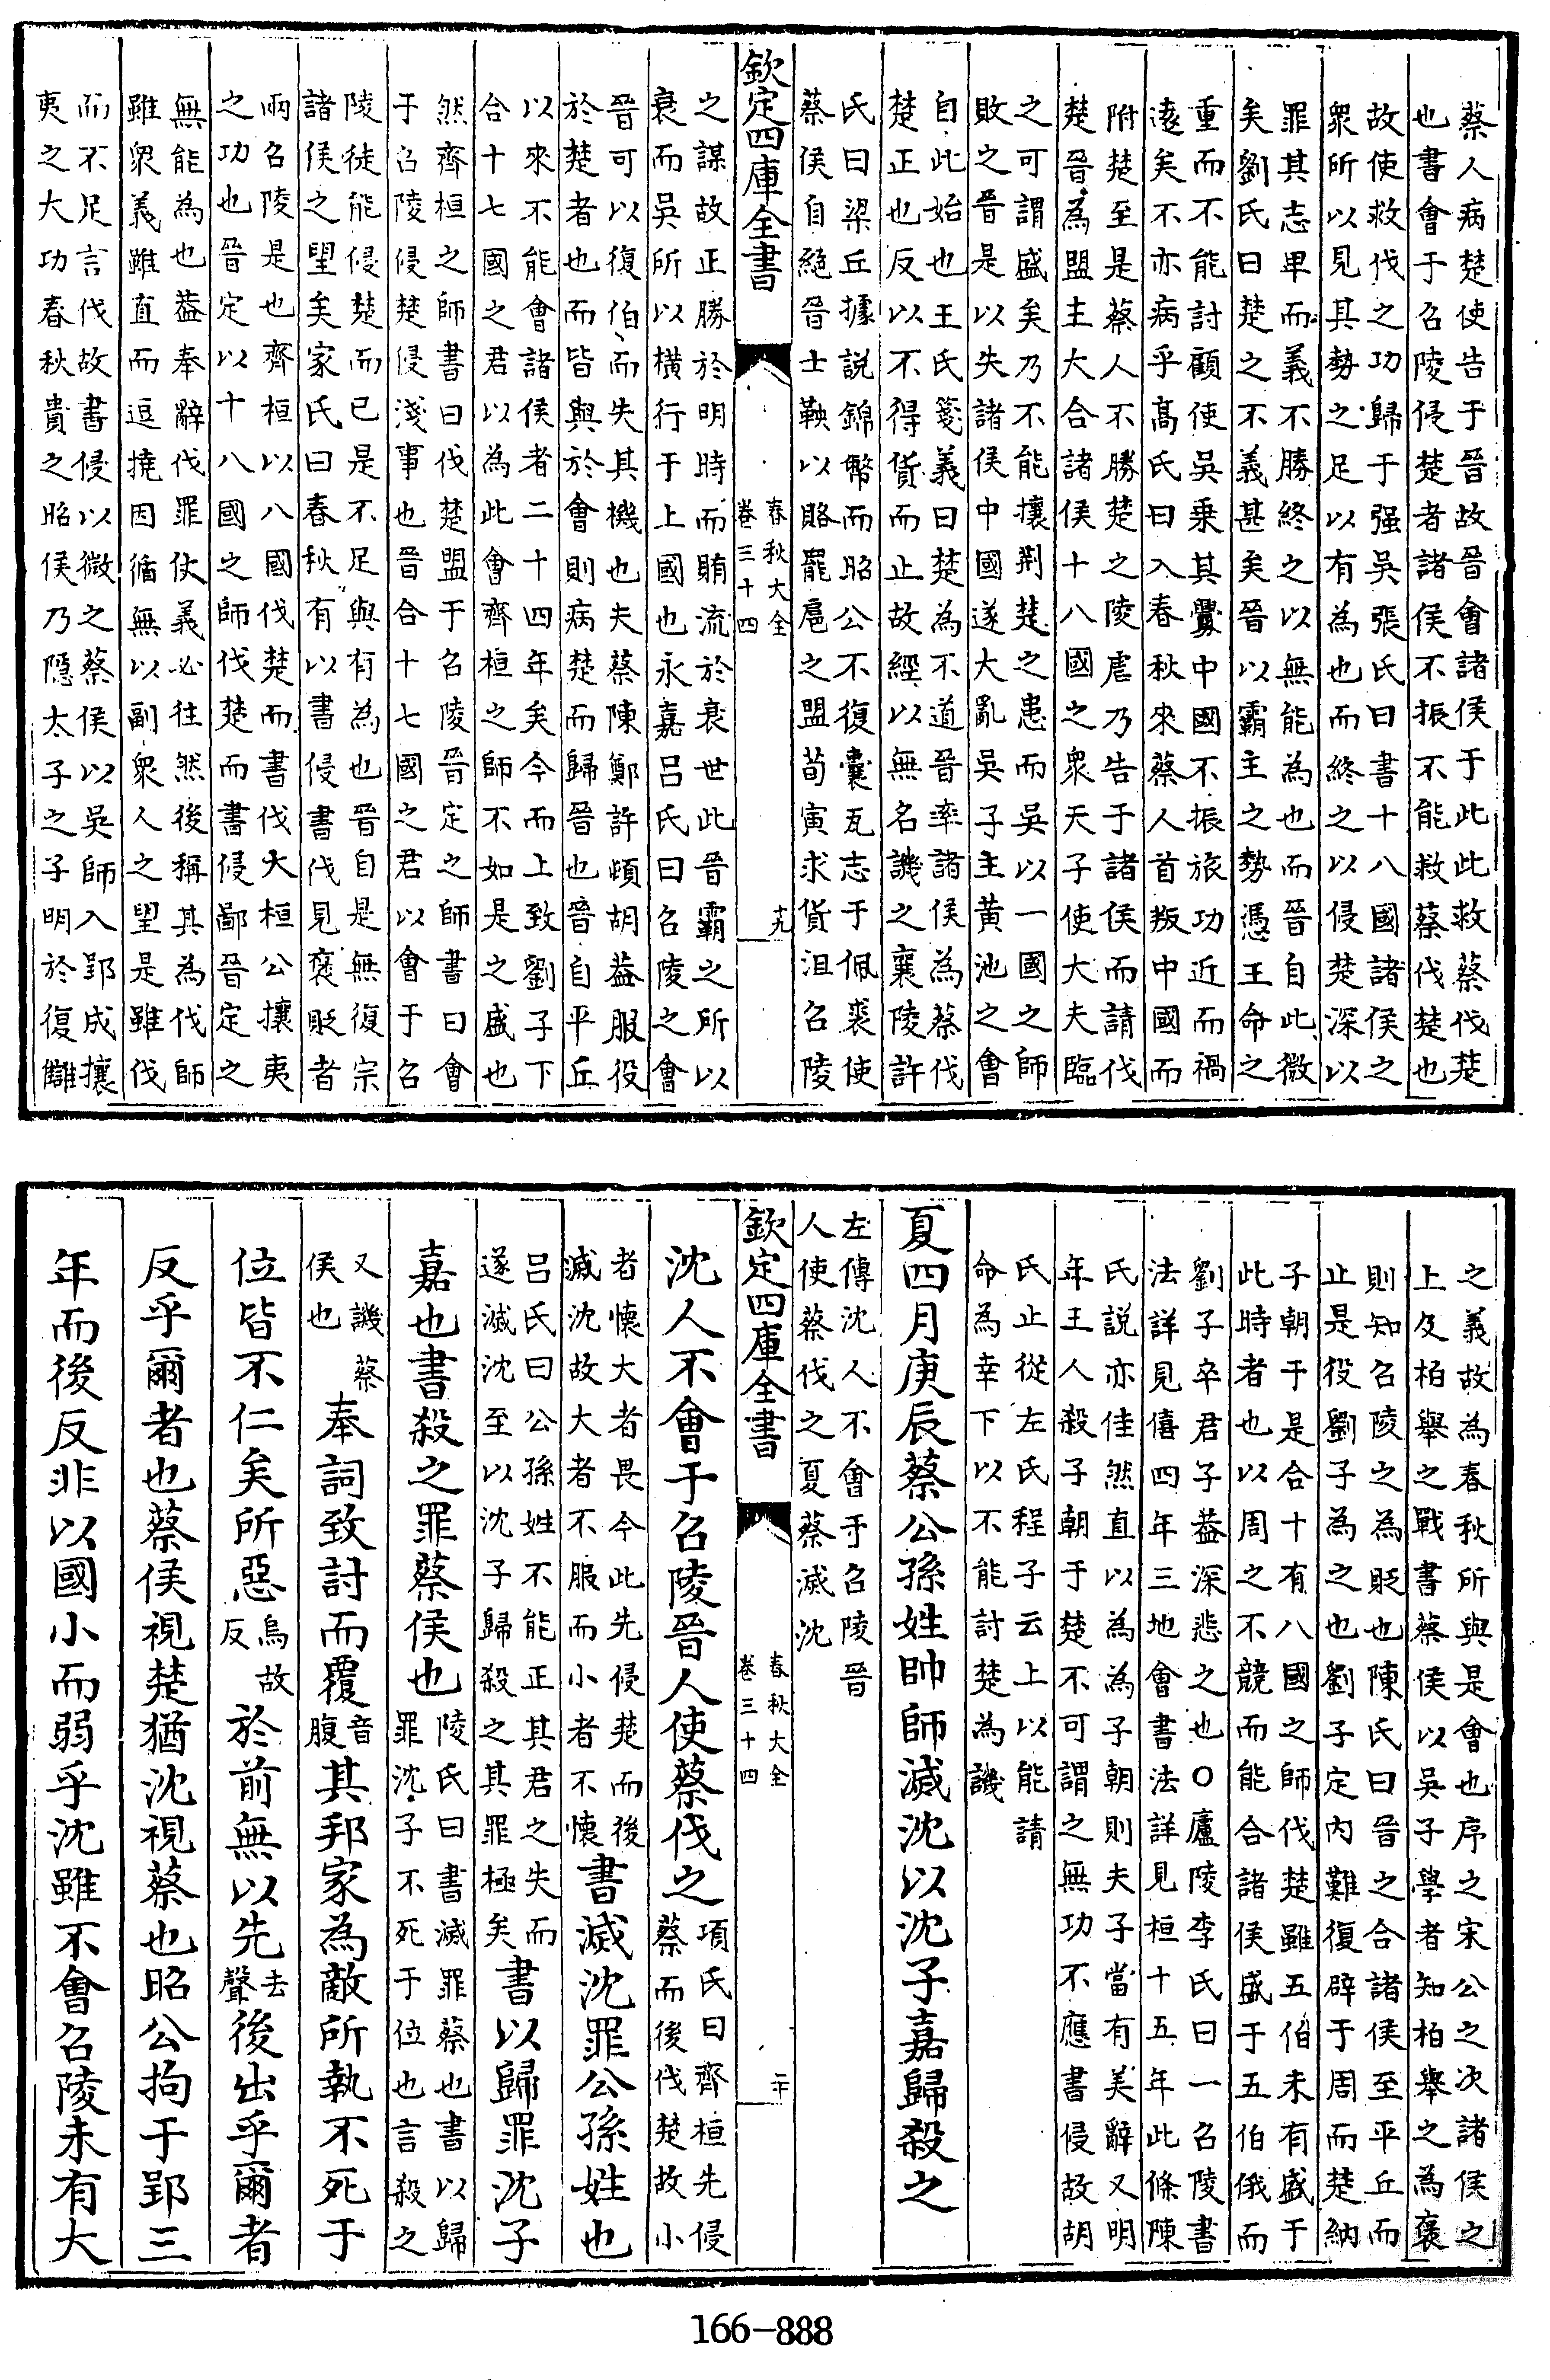 蔡人病楚使告于晉故晉會諸侯于此此救蔡伐楚
也書會于召陵侵楚者諸侯不振不能救蔡伐楚也
故使救伐之功歸于强吳張氏曰書十八國諸侯之
衆所以見其勢之足以有為也而終之以侵楚深以
罪其志卑而義不勝終之以無能為也而晉自此微
矣劉氏曰楚之不義甚矣晉以霸主之勢憑王命之
重而不能討顧使吳乗其釁中國不振旅功近而禍
遠矣不亦病乎髙氏曰入春秋來蔡人首叛中國而
附楚至是蔡人不勝楚之陵虐乃告于諸侯而請伐
楚晉為盟主大合諸侯十八國之衆天子使大夫臨
之可謂盛矣乃不能攘荆楚之患而吳以一國之師
敗之晉是以失諸侯中國遂大亂吳子主黄池之會
自此始也王氏箋義曰楚為不道晉率諸侯為蔡伐
楚正也反以不得貨而止故經以無名譏之襄陵許
氏曰梁丘據說錦幣而昭公不復囊瓦志于佩裘使
蔡侯自絕晉士鞅以賂罷扈之盟荀寅求貨沮召陵
欽定四庫全書
春秋大全
卷三十四
十九
之謀故正勝於明時而賄流於衰世此晉霸之所以
衰而吳所以橫行于上國也永嘉呂氏曰召陵之會
晉可以復伯而失其機也夫蔡陳鄭許頓胡葢服役
於楚者也而皆與於會則病楚而歸晉也晉自平丘
以來不能會諸侯者二十四年矣今而上致劉子下
合十七國之君以為此會齊桓之師不如是之盛也
然齊桓之師書曰伐楚盟于召陵晉定之師書曰會
于召陵侵楚侵淺事也晉合十七國之君以會于召
陵徒能侵楚而已是不足與有為也晉自是無復宗
諸侯之望矣家氏曰春秋有以書侵書伐見襃貶者
兩召陵是也齊桓以八國伐楚而書伐大桓公攘夷
之功也晉定以十八國之師伐楚而書侵鄙晉定之
無能為也葢奉辭伐罪仗義必往然後稱其為伐師
雖衆義雖直而逗撓因循無以副衆人之望是雖伐
而不足言伐故書侵以微之蔡侯以吳師入郢成攘
夷之大功春秋貴之昭侯乃隠太子之子明於復讎
之義故為春秋所與是會也序之宋公之次諸侯之
上及柏舉之戰書蔡侯以吳子學者知柏舉之為襃
則知召陵之為貶也陳氏曰晉之合諸侯至平丘而
止是役劉子為之也劉子定内難復辟于周而楚納
子朝于是合十有八國之師伐楚雖五伯未有盛于
此時者也以周之不競而能合諸侯盛于五伯俄而
劉子卒君子葢深悲之也○廬陵李氏曰一召陵書
法詳見僖四年三地會書法詳見桓十五年此條陳
氏說亦佳然直以為為子朝則夫子當有美辭又明
年王人殺子朝于楚不可謂之無功不應書侵故胡
氏止從左氏程子云上以能請
命為幸下以不能討楚為譏
夏四月庚辰蔡公孫姓帥師滅沈以沈子嘉歸殺之
左傳沈人不會于召陵晉
人使蔡伐之夏蔡滅沈
欽定四庫全書
春秋大全
卷三十四
二十
沈人不會于召陵晉人使蔡伐之項氏曰齊桓先侵
蔡而後伐楚故小
者懷大者畏今此先侵楚而後
滅沈故大者不服而小者不懷書滅沈罪公孫姓也
呂氏曰公孫姓不能正其君之失而
遂滅沈至以沈子歸殺之其罪極矣書以歸罪沈子
嘉也書殺之罪蔡侯也陵氏曰書滅罪蔡也書以歸
罪沈子不死于位也言殺之
又譏蔡
侯也奉詞致討而覆音
腹其邦家為敵所執不死于
位皆不仁矣所惡烏故
反於前無以先去
聲後出乎爾者
反乎爾者也蔡侯視楚猶沈視蔡也昭公拘于郢三
年而後反非以國小而弱乎沈雖不會召陵未有大
166-888